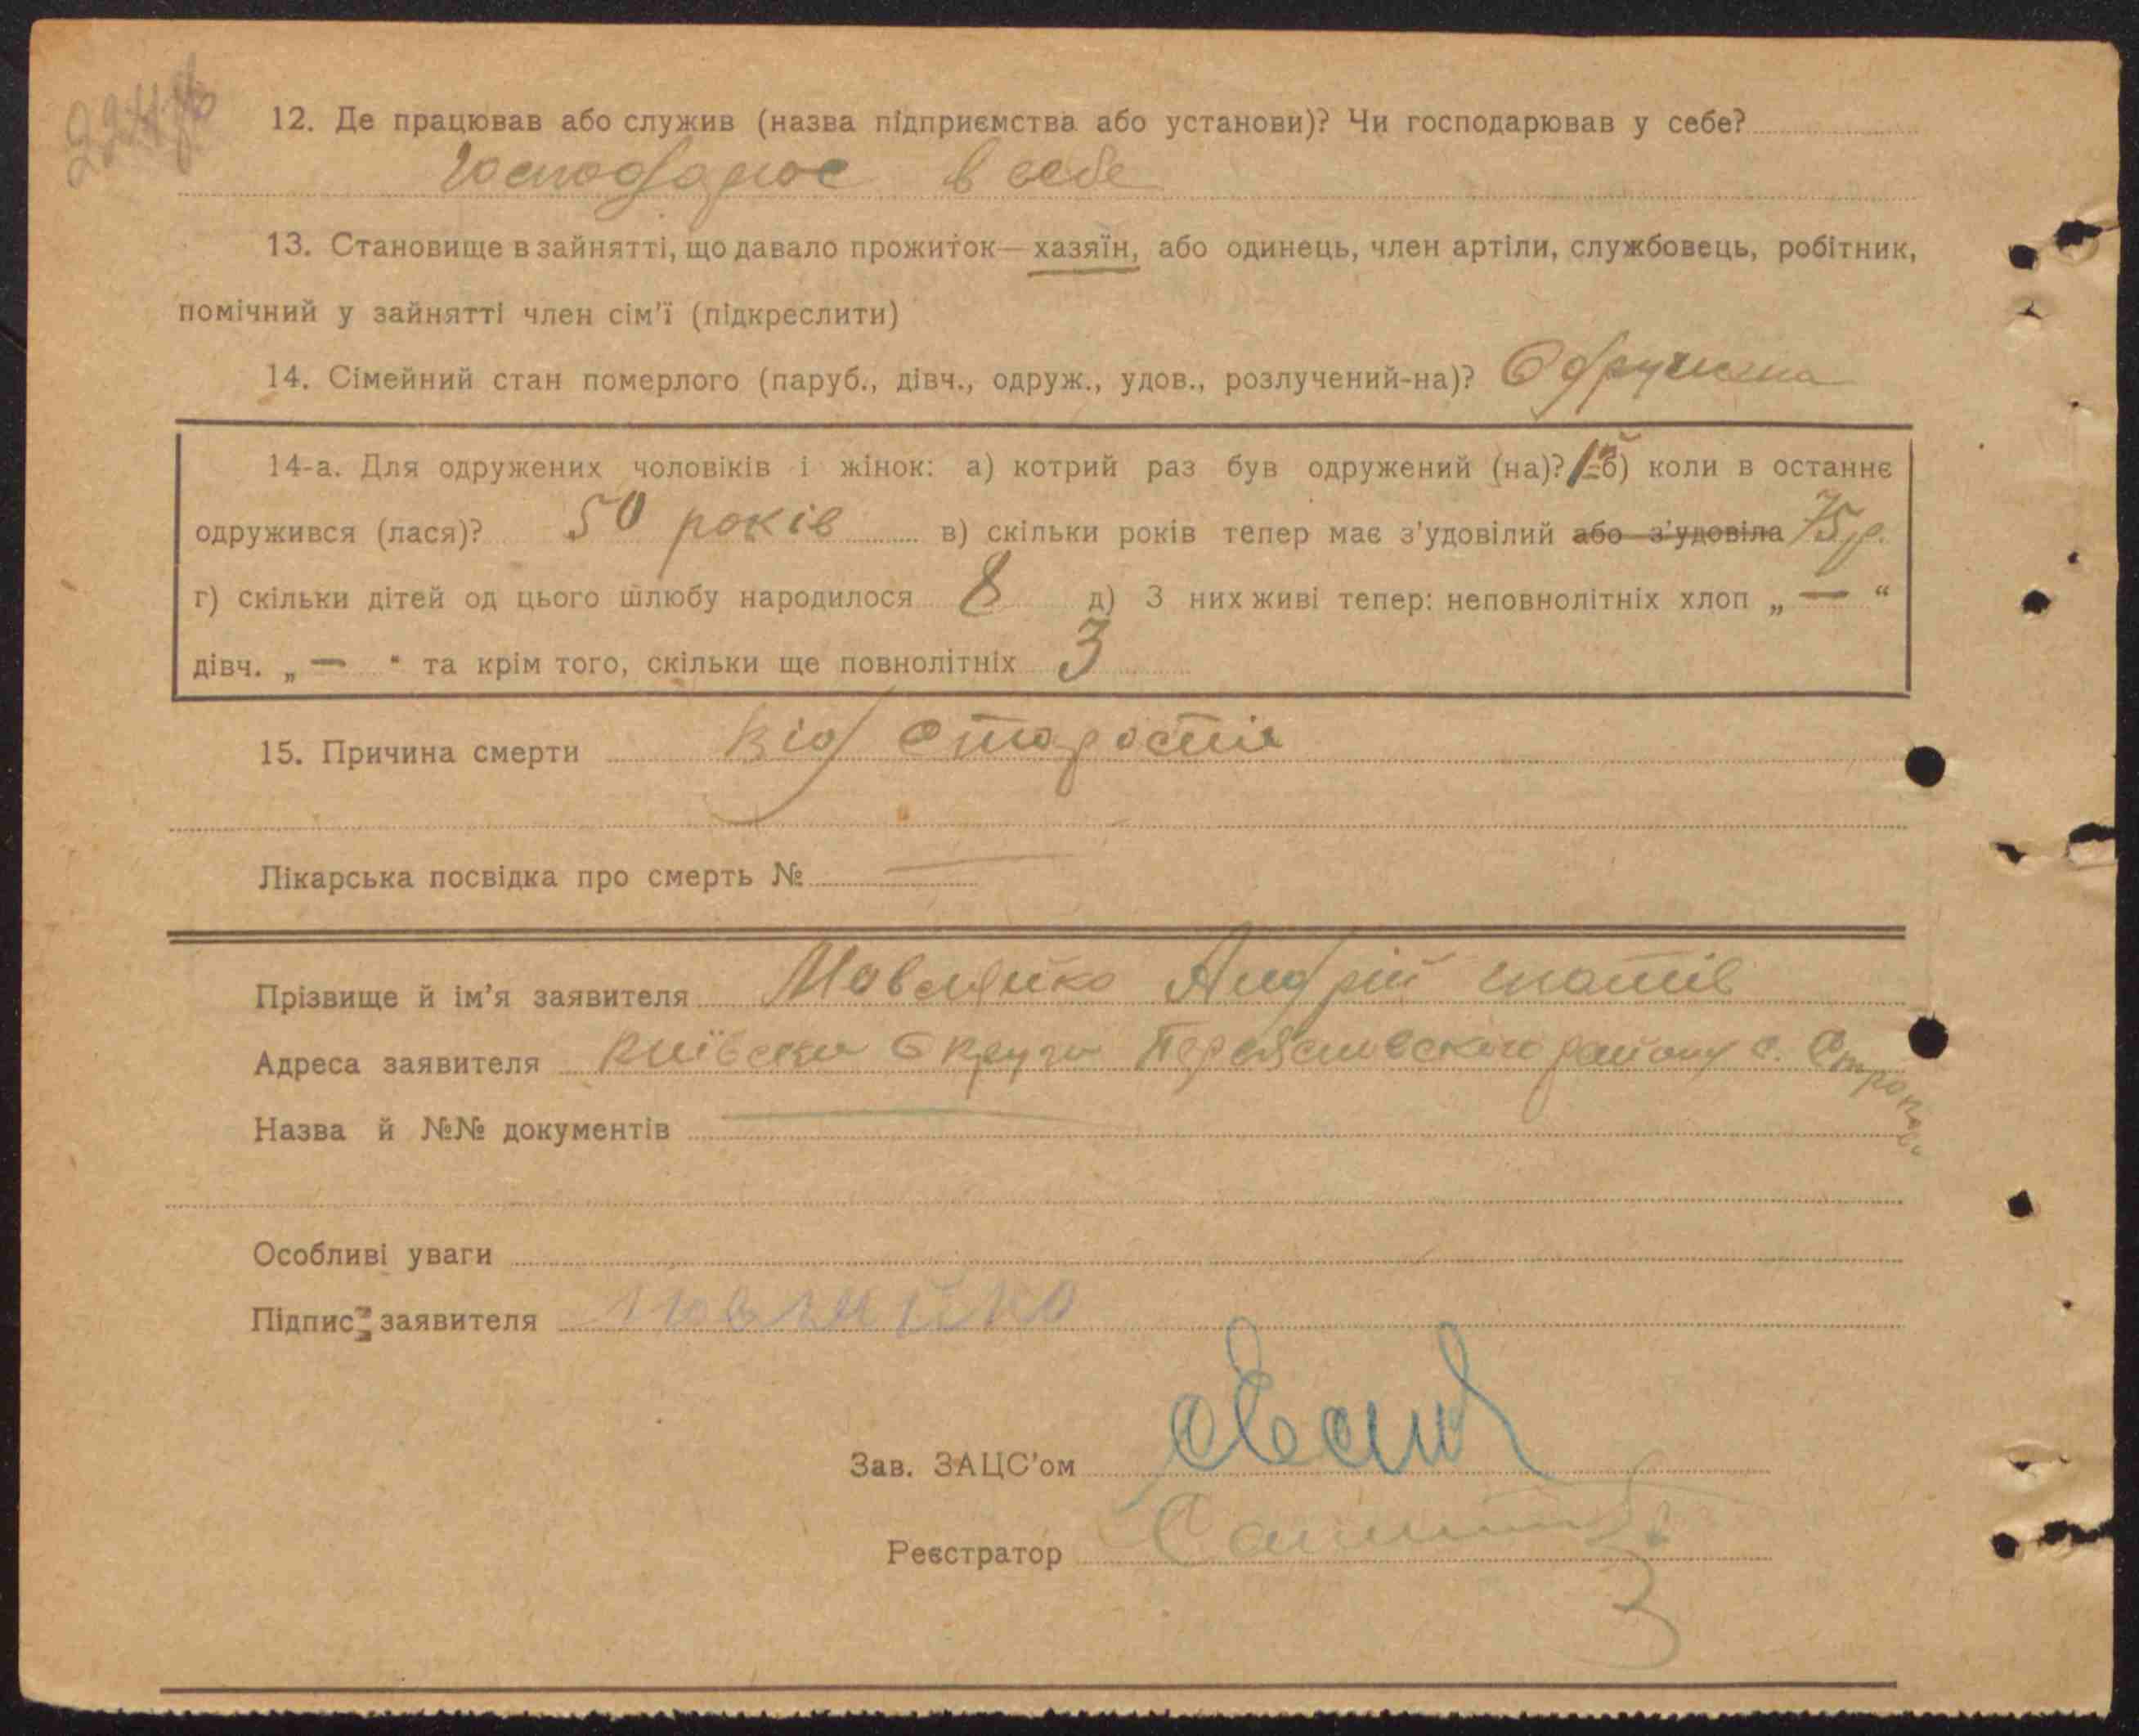 12. Де працював або служив (назва підприємства або установи)? Чи господарював у себе?
Господарює в себе
13. Становище в зайнятті, що давало прожиток— хазяїн, або одинець, член артіли, службовець, робітник,
помічний у зайнятті член сім’ї (підкреслити)
14. Сімейний стан померлого (паруб., дівч., одруж., удов., розлучений-на)? Одружена
14-а. Для одружених чоловіків і жінок: а) котрий раз був одружений (на)? 1й б) коли в останнє
одружився (лася)? 50 років в) скільки років тепер має з’удовілий або з’удовіла 75 р.
г) скільки дітей од цього шлюбу народилося 8 д) З них живі тепер: неповнолітніх хлоп „ — “
дівч. „ — “ та крім того, скільки ще повнолітніх 3
15. Причина смерти від старости
Лікарська посвідка про смерть № —
Прізвище й ім’я заявителя Андрій
Адреса заявителя Київськи Округи району с.
Назва й №№ документів —
Особливі уваги
Підпис заявителя
Зав. ЗАЦС’ом
Реєстратор